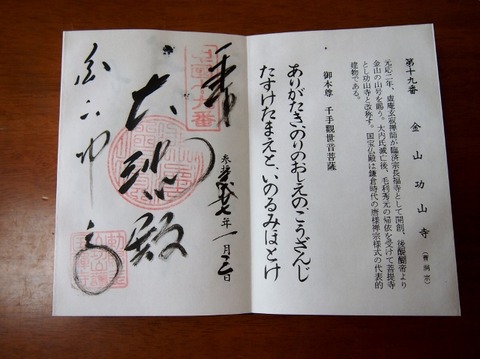 第十九番　金山　功山寺（曹洞宗）
元応二年、虚庵玄寂禅師が臨済宗長福寺として開創、後醍醐帝より
金山の山号を賜う。大内氏滅亡後、毛利秀元の帰依を受けて菩提寺
とし功山寺と改称す。国宝仏殿は鎌倉時代の唐様禅宗様式の代表的
建物である。
御本尊　千手観世音菩薩
ありがたきのりのおしえのこうざんじ
たすけたまえと、いのるみほとけ
奉拝
大悲殿
年一月二日